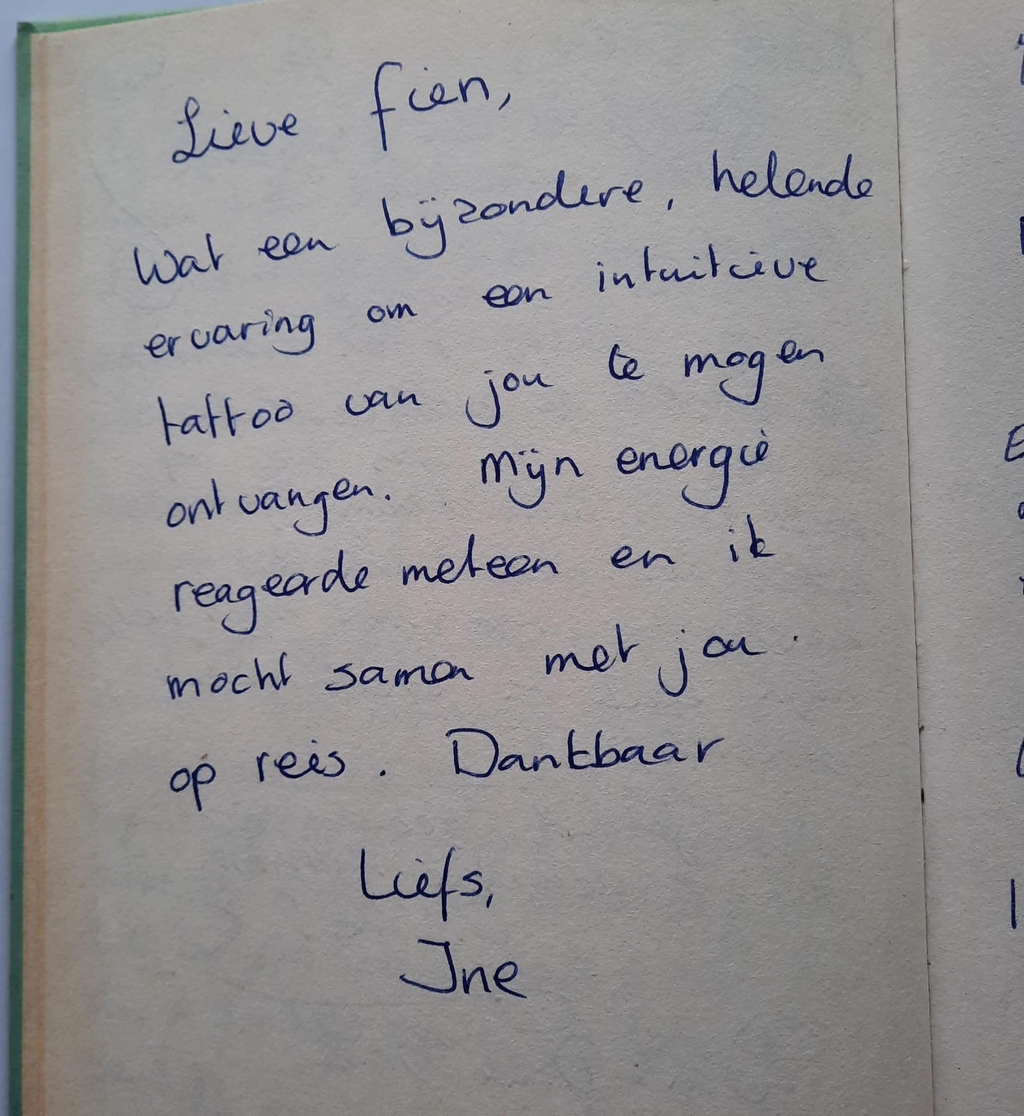 Lieve fien,
Wat een bijzondere, helende
ervaring om een intuitieve
tattoo van jou te mogen
ontvangen. Mijn energie
reageerde meteen en ik
mocht samen met jou
op reis. Dankbaar
Liefs,
Ine